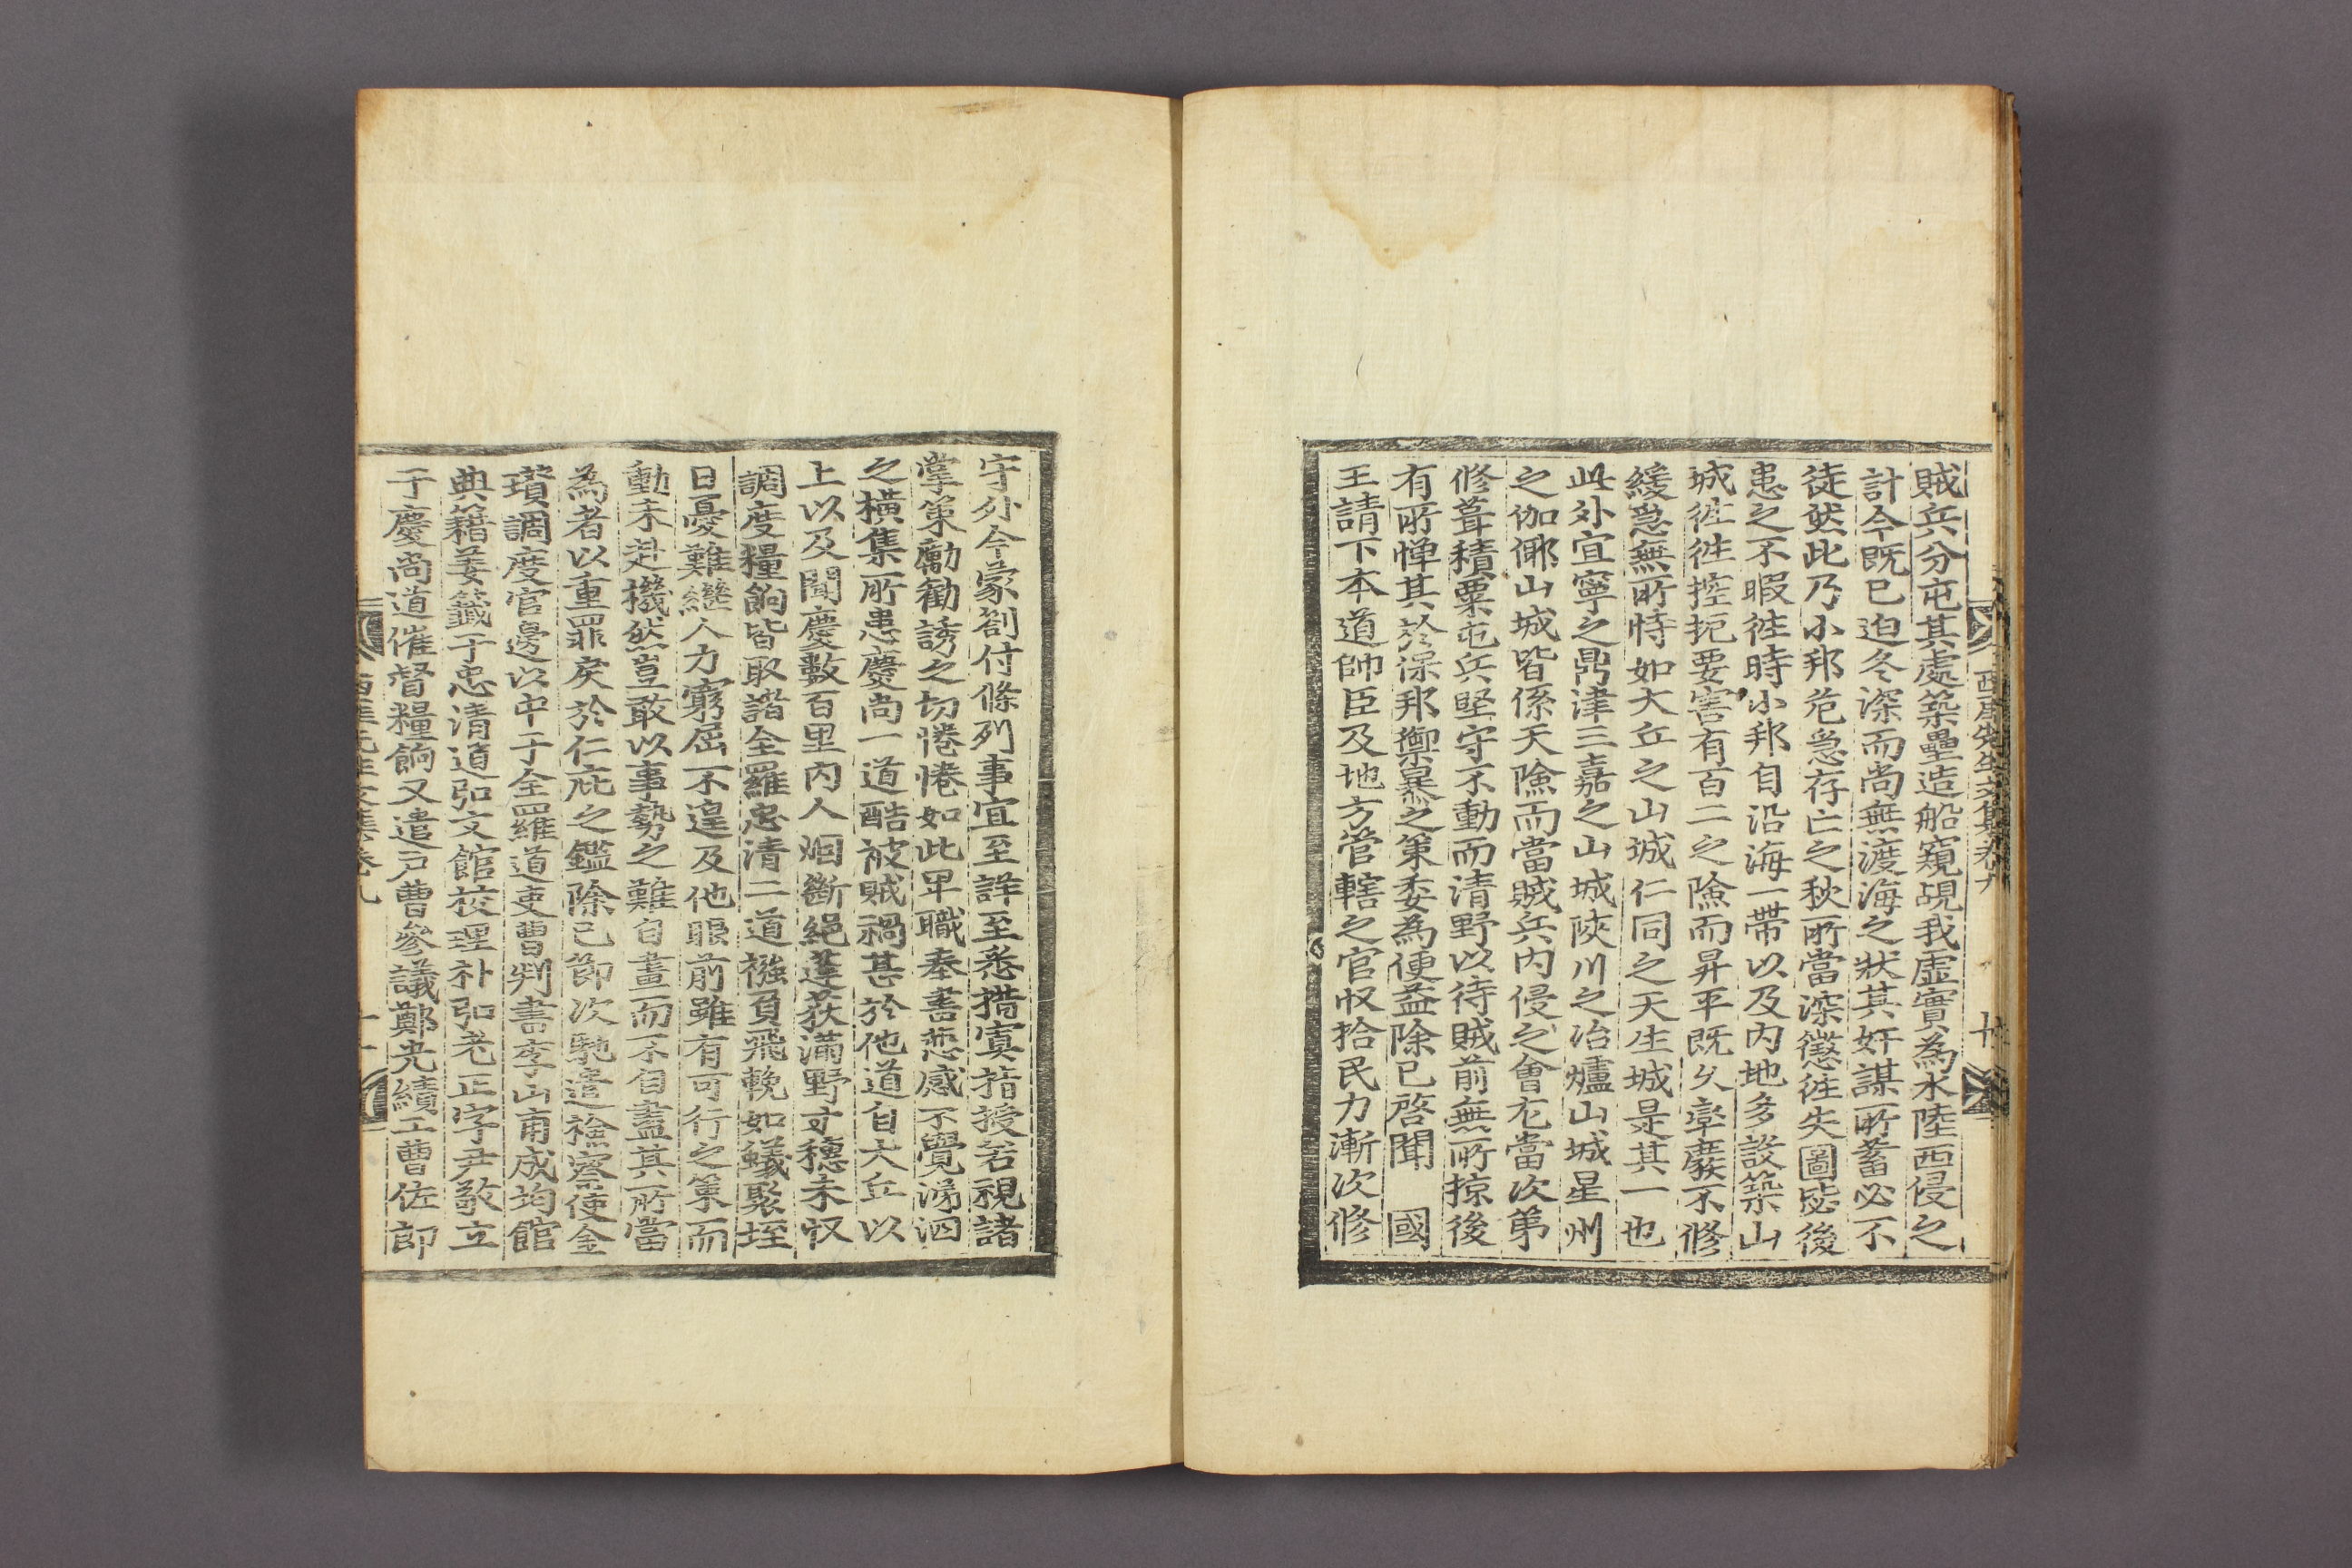 西厓先生文集卷九 十
賊兵分屯其處築壘造船窺覘我虛實為水陸西侵之
計今既已迫冬深而尚無渡海之狀其奸謀所蓄必不
徒然此乃小邦危急存亡之秋所當深懲徃失圖毖後
患之不暇徃時小邦自沿海一帶以及內地多設築山
城徃徃控扼要害有百二之險而昇平既久率廢不修
緩急無所恃如大丘之山城仁同之天生城是其一也
此外宜寧之鼎津三嘉之山城陜川之冶爐山城星州
之伽倻山城皆係天險而當賊兵內侵之會尤當次第
修葺積粟屯兵堅守不動而清野以待賊前無所掠後
有所憚其於保邦禦暴之策委為便益除已啓聞 國
王請下本道帥臣及地方管轄之官收拾民力漸次修
守外今蒙劄付條列事宜至詳至悉措寘指授若視諸
掌策勵勸誘之切惓惓如此卑職奉書悲感不覺涕泗
之橫集所患慶尚一道酷被賊禍甚於他道自大丘以
上以及聞慶數百里內人烟斷絕蓬荻滿野寸穗未收
調度糧餉皆取諸全羅忠清二道襁負飛輓如蟻聚垤
日憂難繼人力窮屈不遑及他眼前雖有可行之策而
動未赴機然豈敢以事勢之難自畫而不自盡其所當
為者以重罪戾於仁庇之鑑除已節次馳遣檢察使金
瓚調度官邊以中于全羅道吏曹判書李山甫成均館
典籍姜籤于忠清道弘文館校理朴弘老正字尹敬立
于慶尚道催督糧餉又遣戶曹參議鄭光績工曹佐郎
西厓先生文集卷九 十一